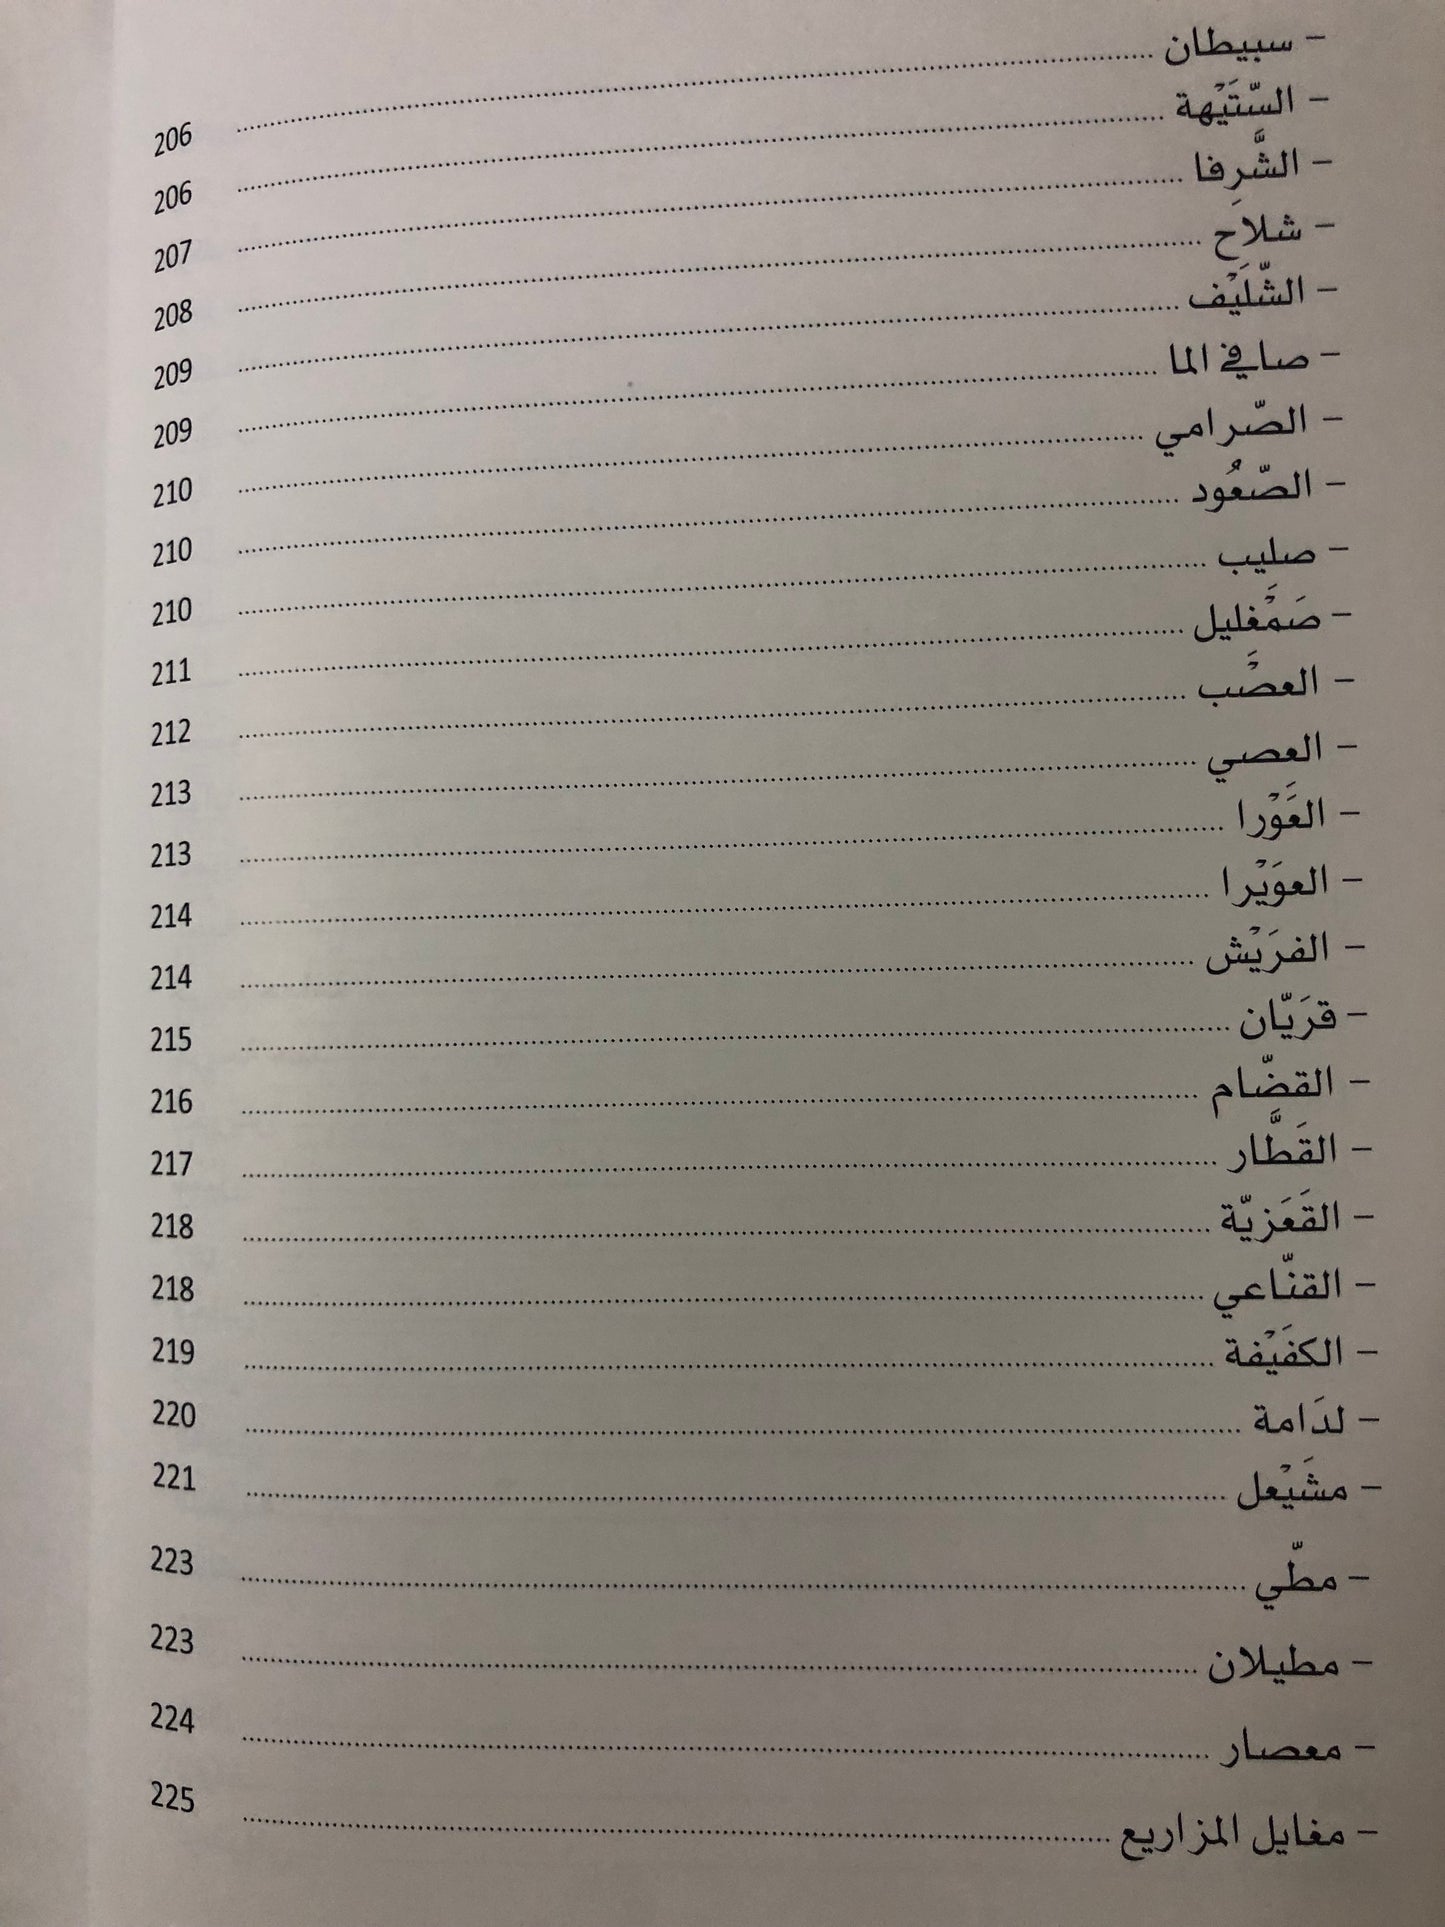 - سبيطان ........ 206
- السّتَيْهة ........ 206
- الشَّرِفا ........ 207
- شلاح ........ 208
- الشّلَيْف ........ 209
- صافي الما ........ 209
- الصّرامي ........ 210
- الصّعُود ........ 210
- صليب ........ 210
- صَمَْغليل ........ 211
- العصَْب ........ 212
- العصي ........ 213
- العَوْرا ........ 213
- العوَيْرا ........ 214
- الفرَيْش ........ 214
- قرَيّان ........ 215
- القضّام ........ 216
- القَطَّار ........ 217
- القَعَزيّة ........ 218
- القنّاعي ........ 218
- الكفَيْفة ........ 219
- لدَامة ........ 220
- مشَيْعل ........ 221
- مطّي ........ 223
- مطيلان ........ 223
- معصار ........ 224
- مغايل المزاريع ........ 225